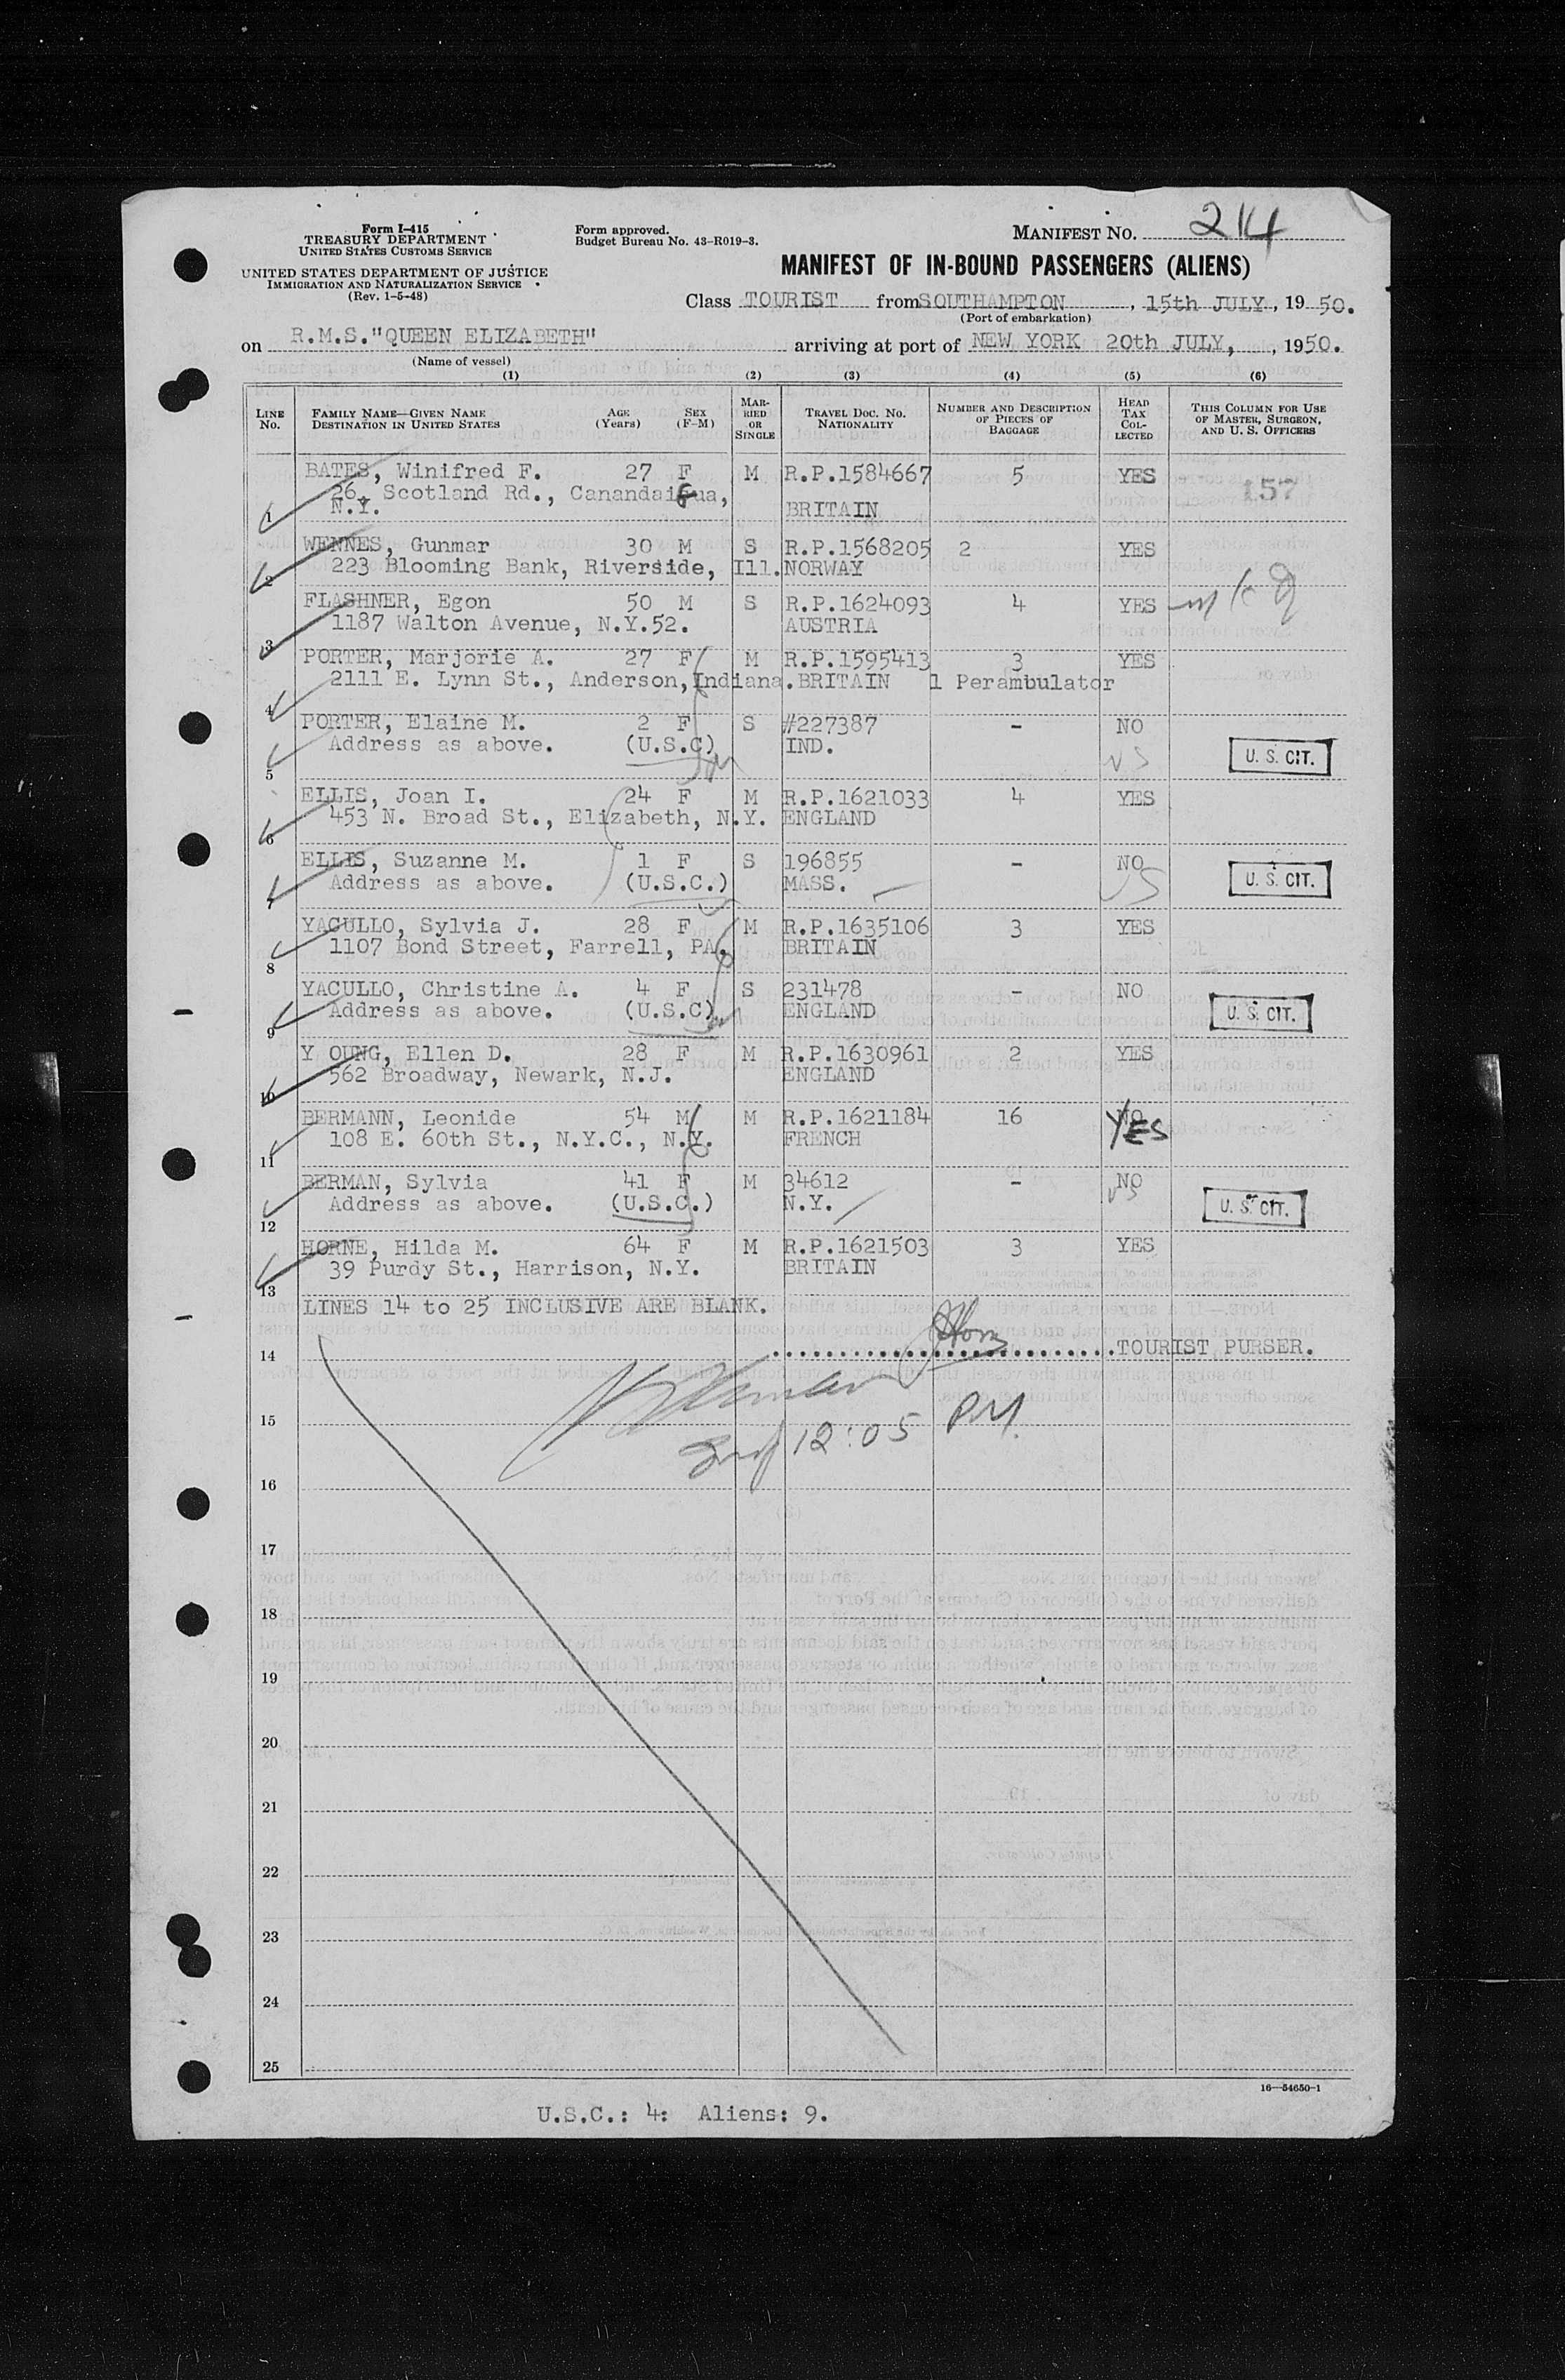 Form I-415
TREASURY DEPARTMENT
UNITED STATES CUSTOMS SERVICE
UNITED STATES DEPARTMENT OF JUSTICE
IMMIGRATION AND NATURALIZATION SERVICE
(Rev. 1-5-48)
Form approved.
Budget Bureau No. 43-R019-3.
MANIFEST NO. 214
MANIFEST OF IN-BOUND PASSENGERS (ALIENS)
Class TOURIST from SOUTHAMPTON, 15th JULY, 19 50.
(Port of embarkation)
on R.M.S."QUEEN ELIZABETH" arriving at port of NEW YORK 20th JULY, , 1950.
(Name of vessel)
(1) (2) (3) (4) (5) (6)
LINE No. FAMILY NAME—GIVEN NAME DESTINATION IN UNITED STATES AGE (Years) SEX (F-M) MARRIED OR SINGLE TRAVEL DOC. NO. NATIONALITY NUMBER AND DESCRIPTION OF PIECES OF BAGGAGE HEAD TAX COLLECTED THIS COLUMN FOR USE OF MASTER, SURGEON, AND U. S. OFFICERS
BATES, Winifred F. 27 F M R.P.1584667 5 YES
26, Scotland Rd., Canandaigua, 157
1 N.Y. BRITAIN
WENNES, Gunmar 30 M S R.P.1568205 2 YES
2 223 Blooming Bank, Riverside, Ill. NORWAY
FLASHNER, Egon 50 M S R.P.1624093 4 YES
3 1187 Walton Avenue, N.Y.52. AUSTRIA
PORTER, Marjorie A. 27 F M R.P.1595413 3 YES
4 2111 E. Lynn St., Anderson, Indiana. BRITAIN 1 Perambulator
PORTER, Elaine M. 2 F S #227387 - NO
5 Address as above. (U.S.C) IND. US U. S. CIT.
ELLIS, Joan I. 24 F M R.P.1621033 4 YES
6 453 N. Broad St., Elizabeth, N.Y. ENGLAND
ELLIS, Suzanne M. 1 F S 196855 - NO
7 Address as above. (U.S.C.) MASS. US U. S. CIT.
YACULLO, Sylvia J. 28 F M R.P.1635106 3 YES
8 1107 Bond Street, Farrell, PA. BRITAIN
YACULLO, Christine A. 4 F S 231478 - NO
9 Address as above. (U.S.C) ENGLAND U. S. CIT.
Y OUNG, Ellen D. 28 F M R.P.1630961 2 YES
10 562 Broadway, Newark, N.J. ENGLAND
BERMANN, Leonide 54 M M R.P.1621184 16 NO YES
11 108 E. 60th St., N.Y.C., N.Y. FRENCH
BERMAN, Sylvia 41 F M 34612 - NO
12 Address as above. (U.S.C.) N.Y. US U. S. CIT.
HORNE, Hilda M. 64 F M R.P.1621503 3 YES
13 39 Purdy St., Harrison, N.Y. BRITAIN
LINES 14 to 25 INCLUSIVE ARE BLANK.
14 ..............................TOURIST PURSER.
15
12:05 PM.
16
17
18
19
20
21
22
23
24
25
16—54650-1
U.S.C.: 4: Aliens: 9.